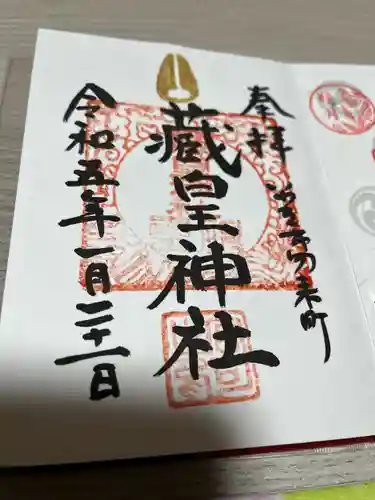 奉拝
蔵皇神社
令和五年一月二十一日